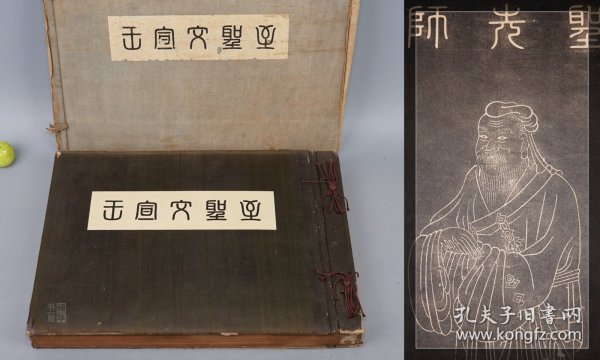 至聖文宣王
至聖文宣王
聖先師
孔夫子旧书网
www.kongfz.com